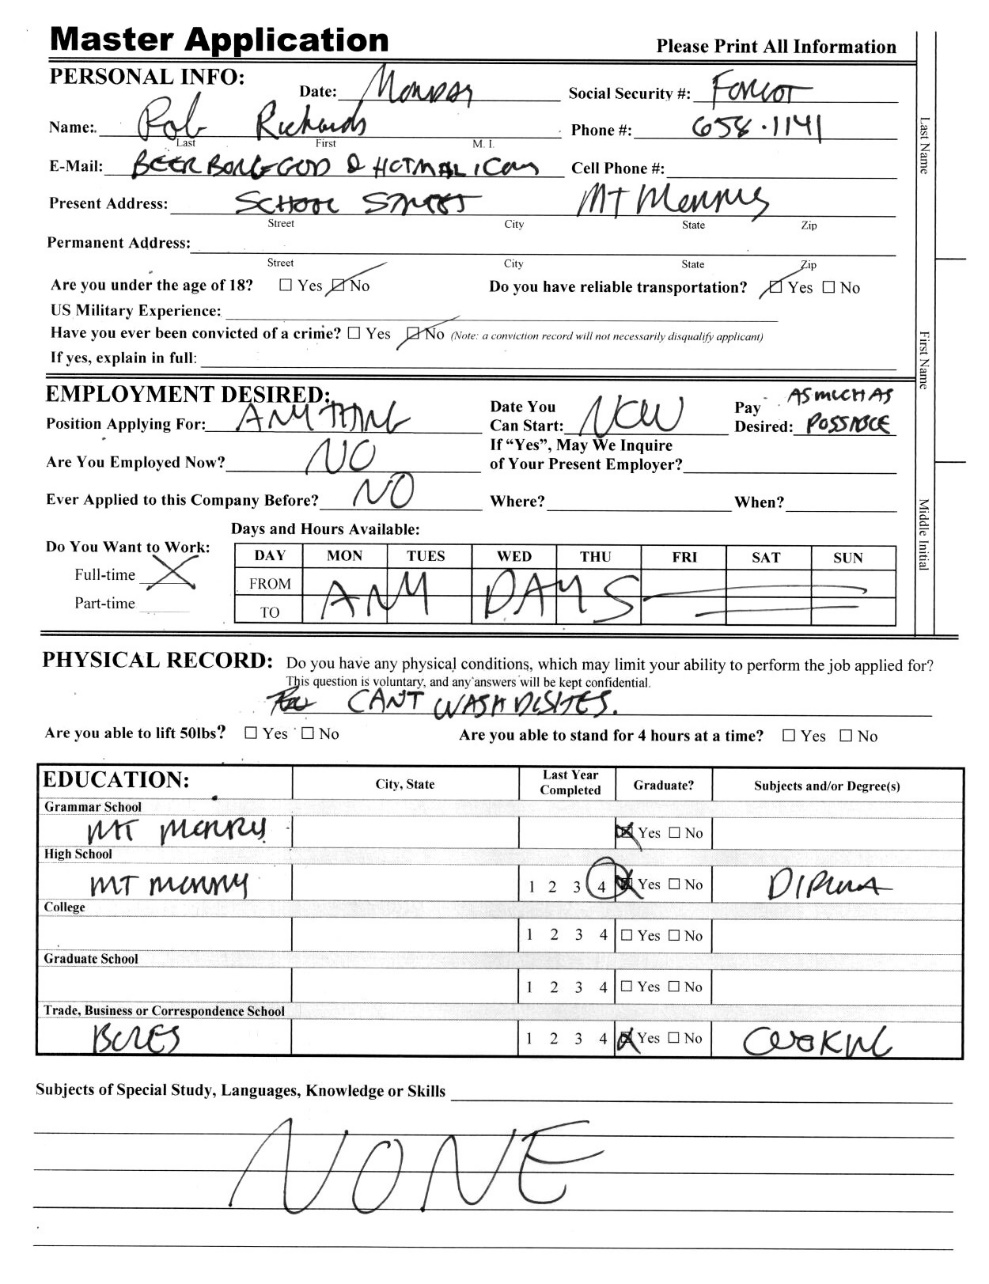 Master Application Please Print All Information
PERSONAL INFO: Date: Monday Social Security #: Forgot
Name: Rob Richards Phone #: 658-1141
Last First M. I.
E-Mail: Cell Phone #:
Present Address: School Street MT Morris
Street City State Zip
Permanent Address:
Street City State Zip
Are you under the age of 18? ☐ Yes ☑ No Do you have reliable transportation? ☑ Yes ☐ No
US Military Experience:
Have you ever been convicted of a crime? ☐ Yes ☑ No (Note: a conviction record will not necessarily disqualify applicant)
If yes, explain in full:
EMPLOYMENT DESIRED:
Position Applying For: ANYTHING Date You Can Start: NOW Pay Desired: AS MUCH AS POSSIBLE
Are You Employed Now? NO If “Yes”, May We Inquire of Your Present Employer?
Ever Applied to this Company Before? NO Where? When?
Days and Hours Available:
Do You Want to Work:
Full-time X
Part-time
DAY MON TUES WED THU FRI SAT SUN
FROM
TO
ANY DAYS
PHYSICAL RECORD: Do you have any physical conditions, which may limit your ability to perform the job applied for?
This question is voluntary, and any answers will be kept confidential.
CANT WASH DISHES.
Are you able to lift 50lbs? ☐ Yes ☐ No Are you able to stand for 4 hours at a time? ☐ Yes ☐ No
EDUCATION: City, State Last Year Completed Graduate? Subjects and/or Degree(s)
Grammar School
MT MORRIS ☑ Yes ☐ No
High School
MT MORRIS 1 2 3 4 ☑ Yes ☐ No
College
1 2 3 4 ☐ Yes ☐ No
Graduate School
1 2 3 4 ☐ Yes ☐ No
Trade, Business or Correspondence School
BOCES 1 2 3 4 ☑ Yes ☐ No COOKING
Subjects of Special Study, Languages, Knowledge or Skills
NONE
Last Name
First Name
Middle Initial